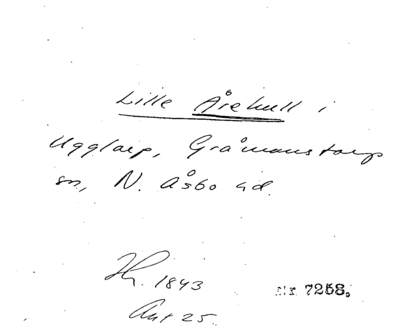 Lille Årekull i
Ugglarp, Gråmanstorps
sn, N. Åsbo hd.
1843
Akt 25
Nr 7258.